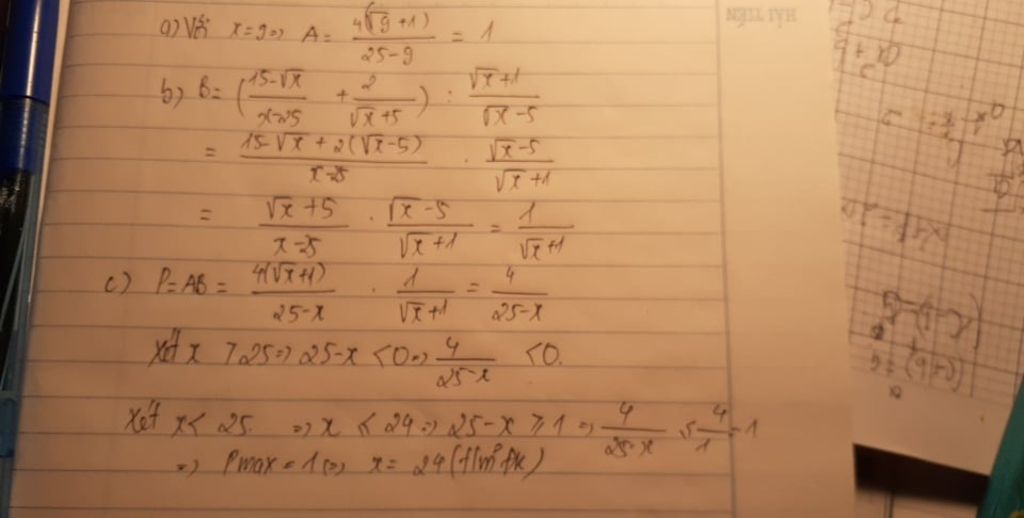 a) Với x=9 => A = \frac{4(\sqrt{9}+1)}{25-9} = 1
b) B = (\frac{15-\sqrt{x}}{x-25} + \frac{2}{\sqrt{x}+5}) : \frac{\sqrt{x}+1}{\sqrt{x}-5}
= \frac{15-\sqrt{x}+2(\sqrt{x}-5)}{x-25} . \frac{\sqrt{x}-5}{\sqrt{x}+1}
= \frac{\sqrt{x}+5}{x-25} . \frac{\sqrt{x}-5}{\sqrt{x}+1} = \frac{1}{\sqrt{x}+1}
c) P=AB = \frac{4(\sqrt{x}+1)}{25-x} . \frac{1}{\sqrt{x}+1} = \frac{4}{25-x}
xét x > 25 => 25-x < 0 => \frac{4}{25-x} < 0.
Xét x < 25 => x ≤ 24 => 25-x ≥ 1 => \frac{4}{25-x} ≤ \frac{4}{1} = 1
=> Pmax = 1 <=> x = 24
HẢI TIẾN